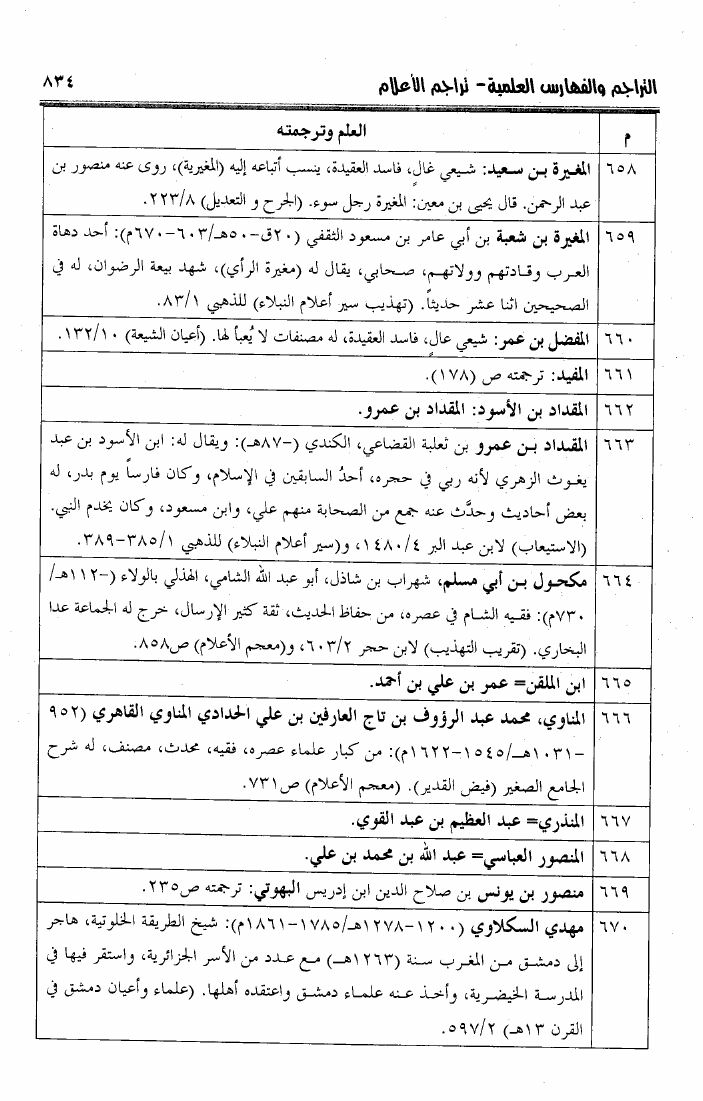 التراجم والفهارس العلمية - تراجم الأعلام ٨٣٤
م العلم وترجمته
٦٥٨ المغيرة بن سعيد: شيعي غالٍ، فاسد العقيدة، ينسب أتباعه إليه (المغيرية)، روى عنه منصور بن
عبد الرحمن. قال يحيى بن معين: المغيرة رجل سوء. (الجرح و التعديل) ٢٢٣/٨.
٦٥٩ المغيرة بن شعبة بن أبي عامر بن مسعود الثقفي (٢٠ق-٥٠هـ/٦٠٣-٦٧٠م): أحد دهاة
العرب وقادتهم وولاتهم، صحابي، يقال له (مغيرة الرأي)، شهد بيعة الرضوان، له في
الصحيحين اثنا عشر حديثاً. (تهذيب سير أعلام النبلاء) للذهبي ٨٣/١.
٦٦٠ المفضل بن عمر: شيعي عالٍ، فاسد العقيدة، له مصنفات لا يُعبأ لها. (أعيان الشيعة) ١٣٢/١٠.
٦٦١ المفيد: ترجمته ص (١٧٨).
٦٦٢ المقداد بن الأسود: المقداد بن عمرو.
٦٦٣ المقداد بن عمرو بن ثعلبة القضاعي، الكندي (-٨٧هـ): ويقال له: ابن الأسود بن عبد
يغوث الزهري لأنه ربي في حجره، أحدُ السابقين في الإسلام، وكان فارساً يوم بدر، له
بعض أحاديث وحدَّث عنه جمع من الصحابة منهم علي، وابن مسعود، وكان يخدم النبي.
(الاستيعاب) لابن عبد البر ١٤٨٠/٤، و(سير أعلام النبلاء) للذهبي ٣٨٥/١-٣٨٩.
٦٦٤ مكحول بن أبي مسلم، شهراب بن شاذل، أبو عبد الله الشامي، الهذلي بالولاء (-١١٢هـ/
٧٣٠م): فقيه الشام في عصره، من حفاظ الحديث، ثقة كثير الإرسال، خرج له الجماعة عدا
البخاري. (تقريب التهذيب) لابن حجر ٦٠٣/٢، و(معجم الأعلام) ص٨٥٨.
٦٦٥ ابن الملقن= عمر بن علي بن أحمد.
٦٦٦ المناوي، محمد عبد الرؤوف بن تاج العارفين بن علي الحدادي المناوي القاهري (٩٥٢
-١٠٣١هـ/١٥٤٥-١٦٢٢م): من كبار علماء عصره، فقيه، محدث، مصنف، له شرح
الجامع الصغير (فيض القدير). (معجم الأعلام) ص٧٣١.
٦٦٧ المنذري= عبد العظيم بن عبد القوي.
٦٦٨ المنصور العباسي= عبد الله بن محمد بن علي.
٦٦٩ منصور بن يونس بن صلاح الدين ابن إدريس البهوتي: ترجمته ص٢٣٥.
٦٧٠ مهدي السكلاوي (١٢٠٠-١٢٧٨هـ/١٧٨٥-١٨٦١م): شيخ الطريقة الخلوتية، هاجر
إلى دمشق من المغرب سنة (١٢٦٣هـ) مع عدد من الأسر الجزائرية، واستقر فيها في
المدرسة الخيضرية، وأخذ عنه علماء دمشق واعتقده أهلها. (علماء وأعيان دمشق في
القرن ١٣هـ) ٥٩٧/٢.